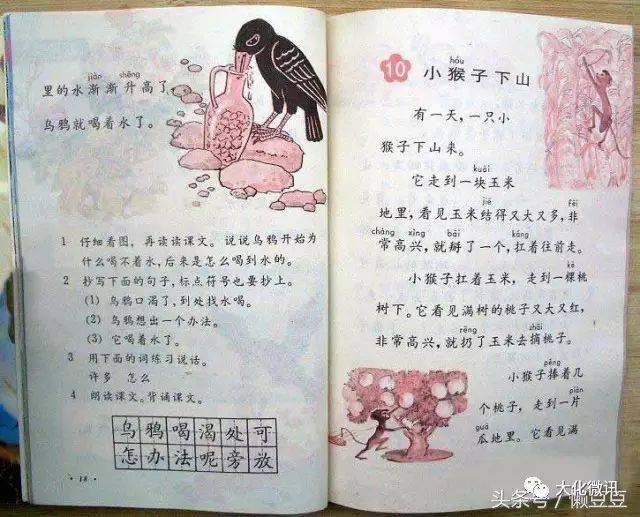 jiàn shēng
里的水渐渐升高了，
乌鸦就喝着水了。
1 仔细看图，再读读课文。说说乌鸦开始为
什么喝不着水，后来是怎么喝到水的。
2 抄写下面的句子，标点符号也要抄上。
(1) 乌鸦口渴了，到处找水喝。
(2) 乌鸦想出一个办法。
(3) 它喝着水了。
3 用下面的词练习说话。
许多 怎么
4 朗读课文。背诵课文。
乌鸦喝渴处可
怎办法呢旁放
· 18 ·
hóu
10 小猴子下山
有一天，一只小
猴子下山来。
kuài
它走到一块玉米
jiē fēi
地里，看见玉米结得又大又多，非
cháng xìng bāi káng
常高兴，就掰了一个，扛着往前走。
kē
小猴子扛着玉米，走到一棵桃
树下。它看见满树的桃子又大又红，
rēng zhāi
非常高兴，就扔了玉米去摘桃子。
pěng
小猴子捧着几
piàn
个桃子，走到一片
guā
瓜地里。它看见满
大化微讯
头条号／懒豆豆